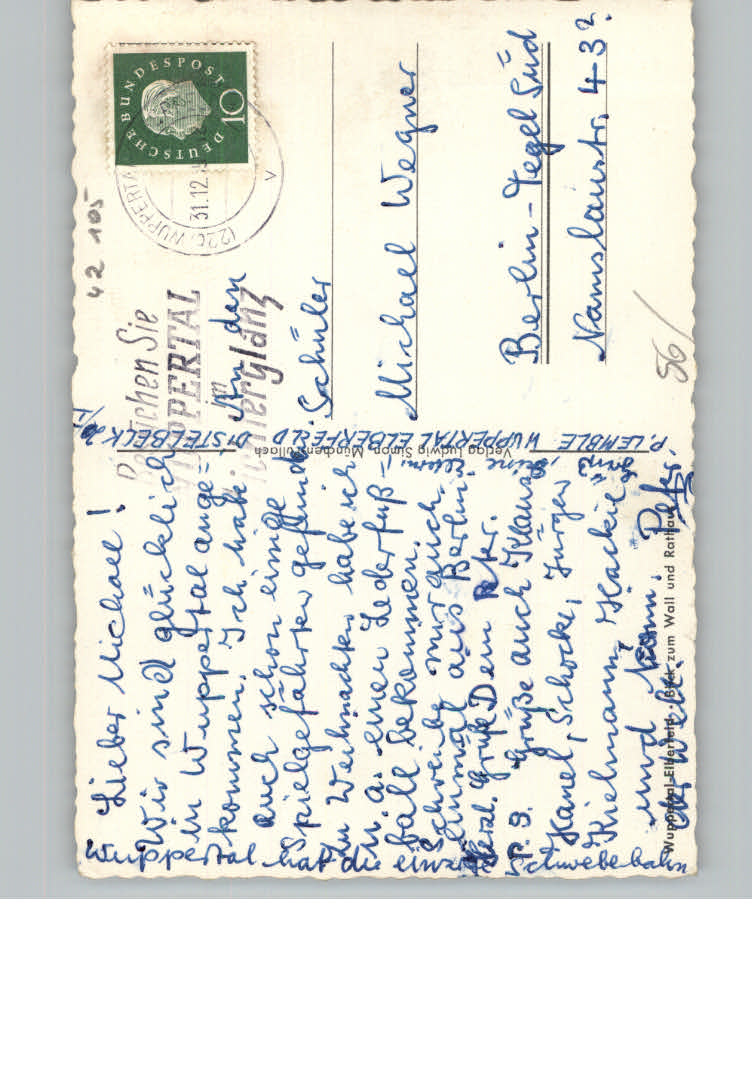 Lieber Michael!
Wir sind glücklich
in Wuppertal ange=
kommen. Ich habe
auch schon einige
Spielgefährten gefunden
Zu Weihnachten habe ich
u.a. einen Lederfuß-
ball bekommen.
Schreibe mir auch
einmal aus Berlin.
Herzl. Gruß Dein Peter.
P.S. Grüße auch Klaus
Hanel, Schocke, Jürgen
Kielmann, "Hackie"
und
der Welt. Peter.
Wuppertal hat die einzige Schwebebahn
Gruß
Deine Eltern!
Wuppertal-Elberfeld · Blick zum Wall und Rathaus
P. LEMBLE WUPPERTAL ELBERFELD DISTELBECK
Verlag Ludwig Simon, München-Pullach
42 105
DEUTSCHE BUNDESPOST
10
(22a) WUPPERTA
31.12.
V
chen Sie
WUPPERTAL
im
Lichterglanz
An den
Schüler
Michael Wegner
Berlin-Tegel Süd
Namslaustr. 43?
56/